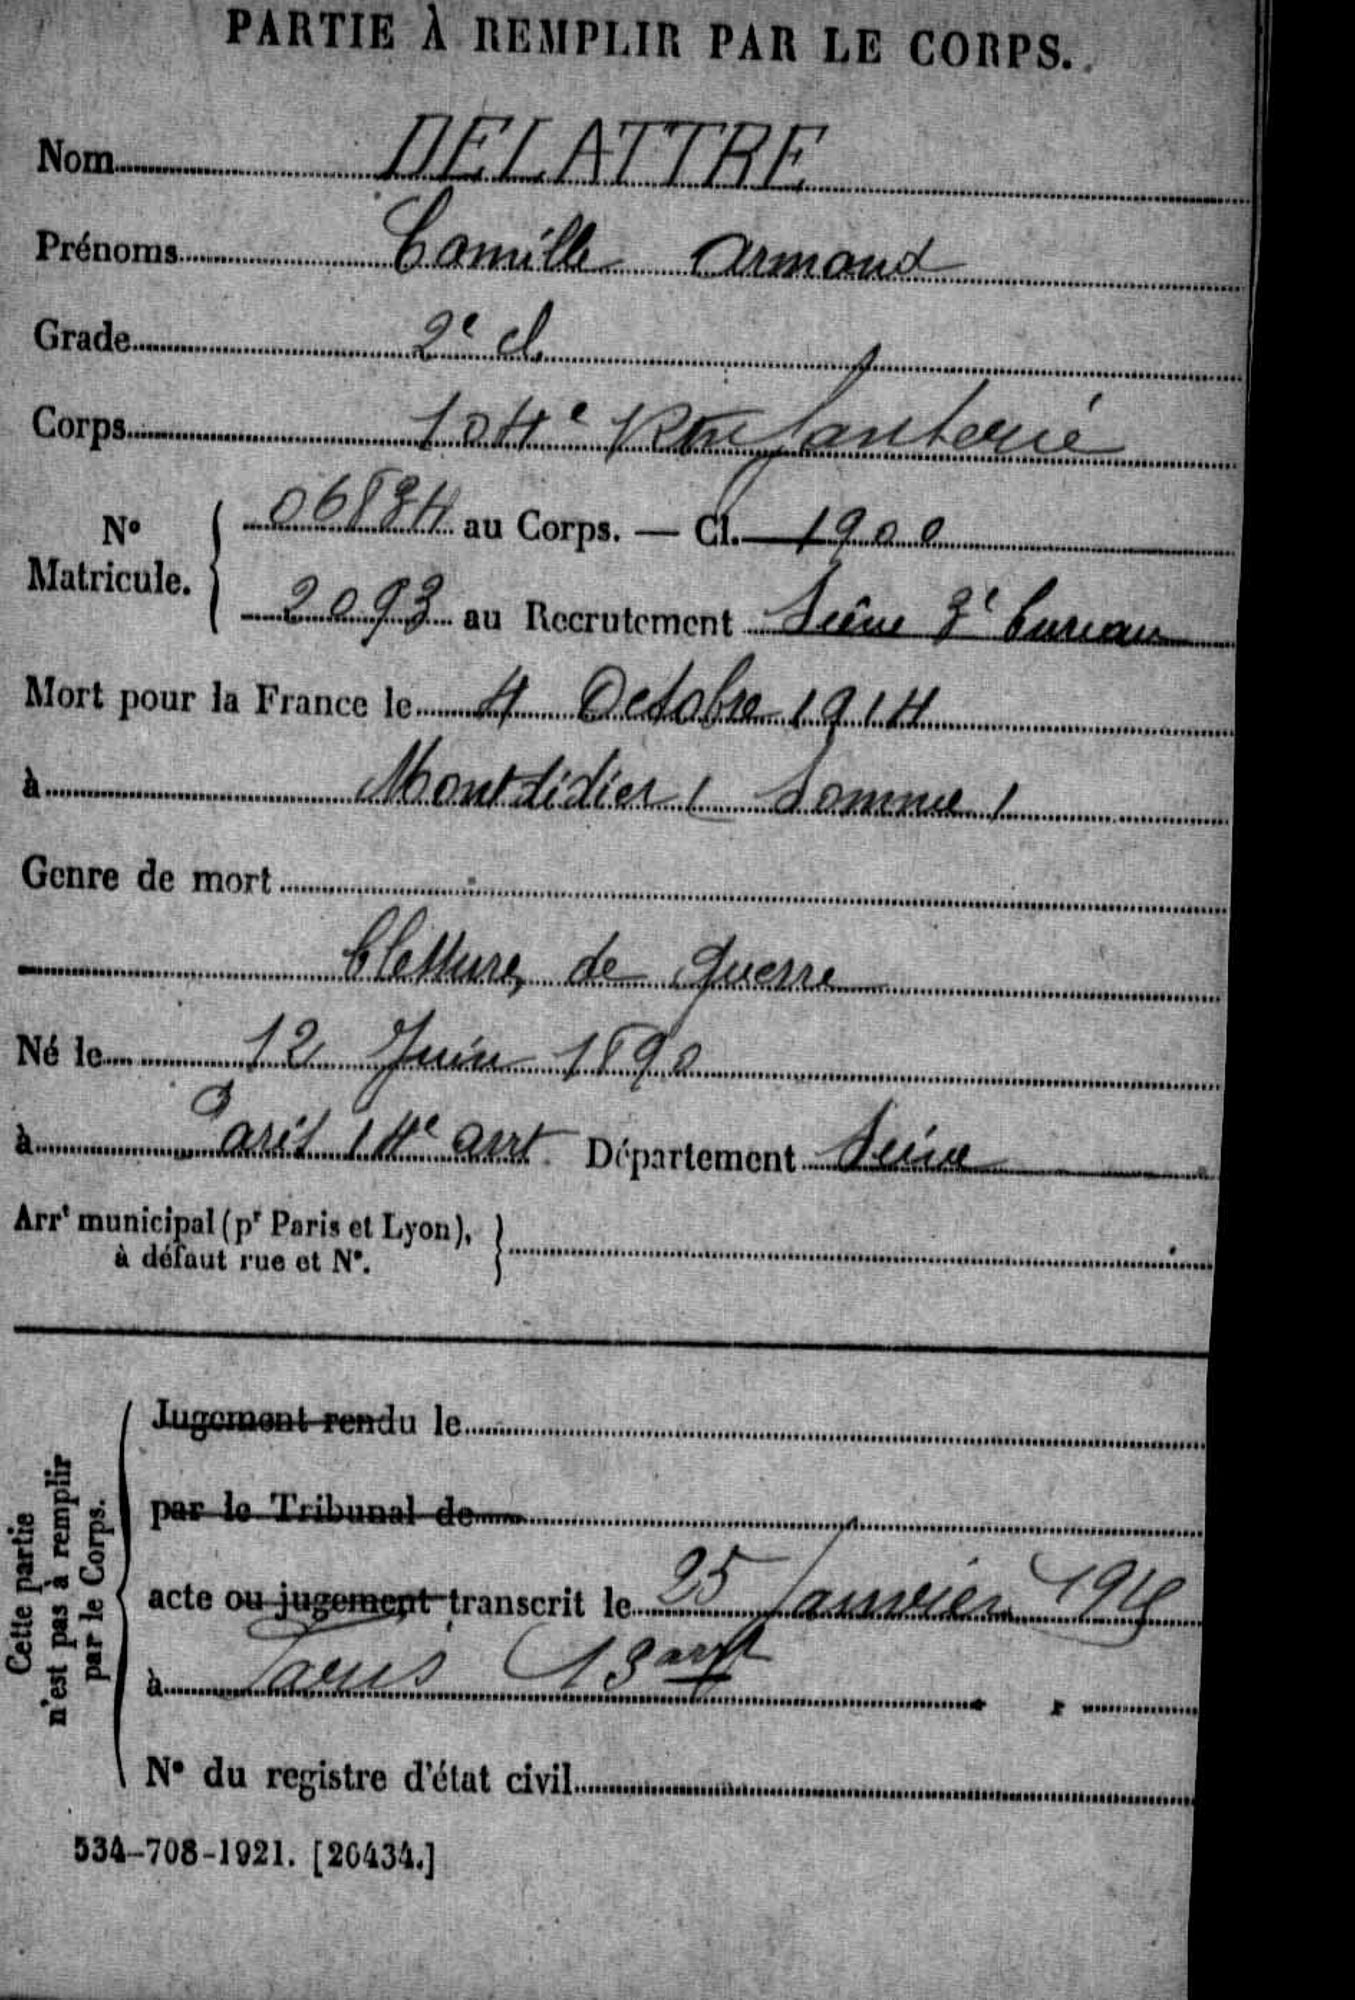 PARTIE À REMPLIR PAR LE CORPS.
Nom DELATTRE
Prénoms Camille Armand
Grade 2e cl
Corps 104e Infanterie
No Matricule. 06834 au Corps. — Cl. 1900
2093 au Recrutement Seine 3e bureau
Mort pour la France le 4 Octobre 1914
à Montdidier (Somme)
Genre de mort
blessures de guerre
Né le 12 Juin 1890
à Paris 14e arrt Département Seine
Arrt municipal (pr Paris et Lyon),
à défaut rue et No.
Jugement rendu le
par le Tribunal de
acte ou jugement transcrit le 25 Janvier
à Paris 13 arrt
No du registre d'état civil
Cette partie
n'est pas à remplir
par le Corps.
534-708-1921. [26434.]